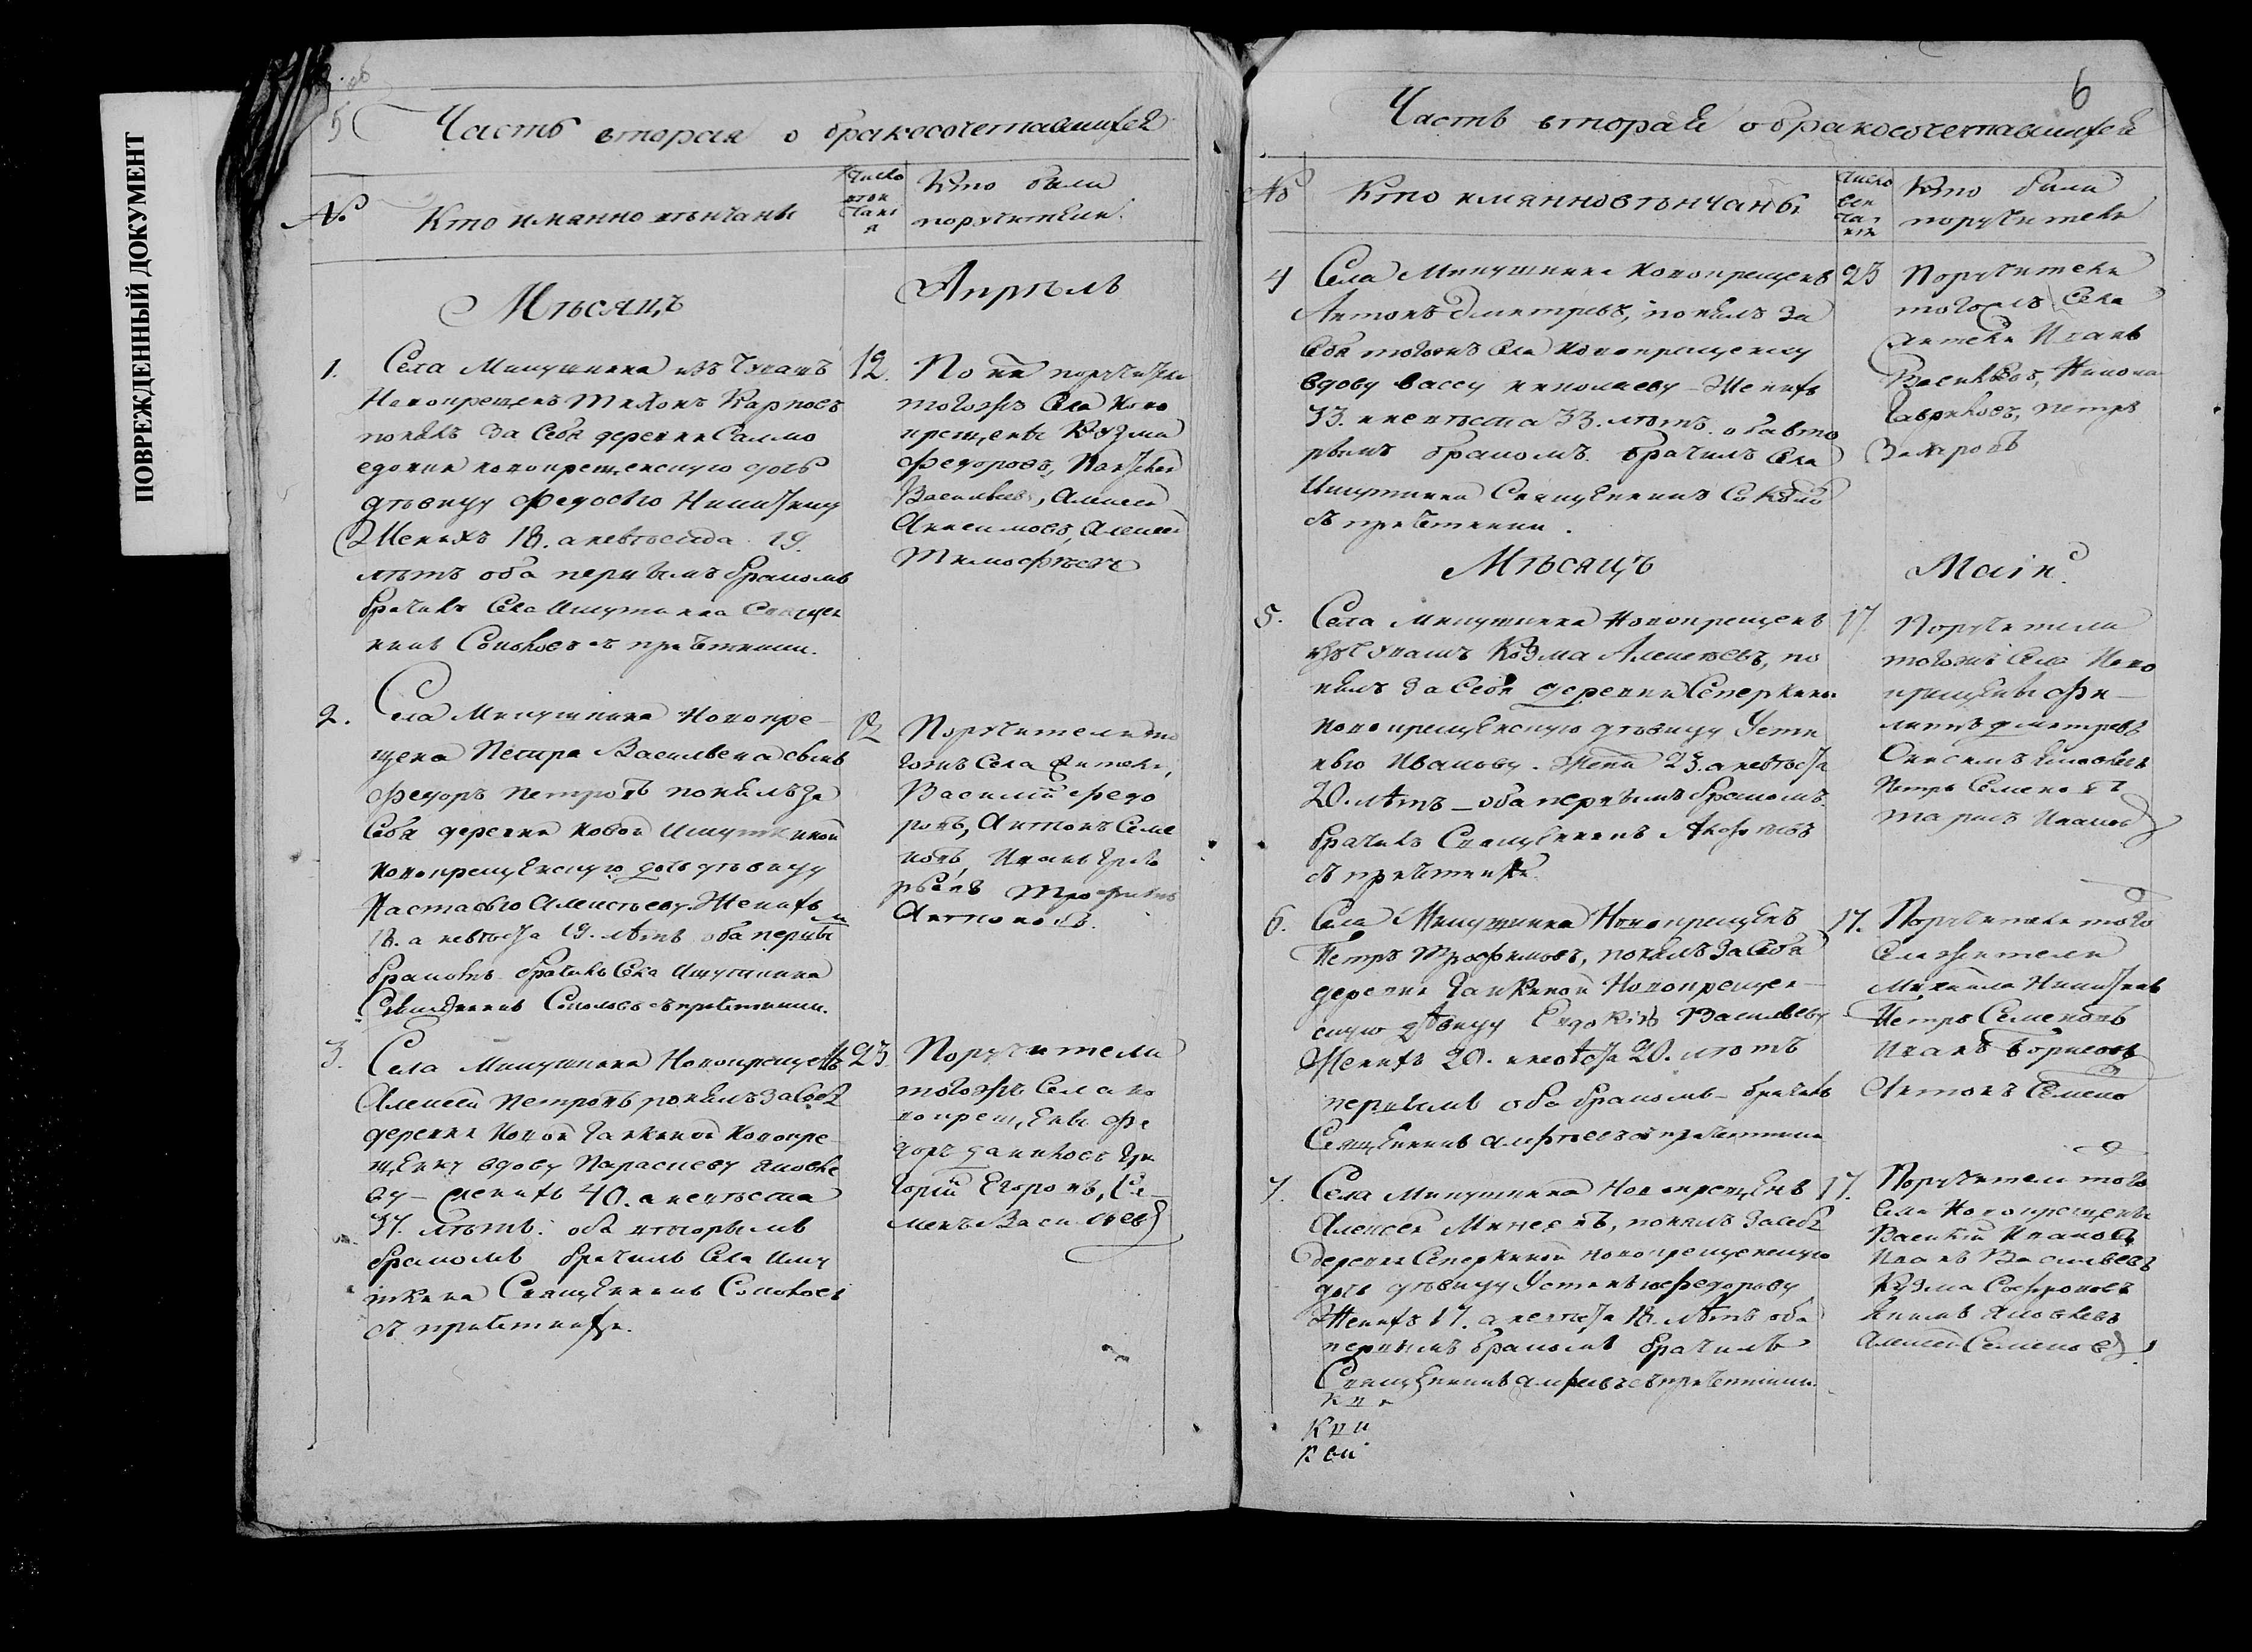 ПОВРЕЖДЕННЫЙ ДОКУМЕНТ
Часть вторая о бракосочетавшихся
№
Кто имянно вѣнчаны
Число
вѣн
чані
я
Кто были
поручители.
Мѣсяцъ
Апрѣль
1.
Села Мишушкина изъ Чувашъ
Новокрещенъ Тихонъ Карповъ
понялъ за Себя деревни
новокрещенскую дочь
дѣвицу Федосью Никитину
Женихъ 18. а невѣста 19.
лѣтъ оба первымъ бракомъ
брачилъ Села Ишуткина Священ
никъ Соколовъ съ причетники.
12.
По нихъ поручители
тогожъ Села Ново
крещены Козма
Федоровъ,
Васильевъ, Алексей
Анисимовъ, Алексей
Тимофѣевъ
2.
Села Мишушкина Новокре
щена Петра Васильева сынъ
Федоръ Петровъ понялъ за
Себя деревни Новой Ишуткиной
новокрещенскую дочь дѣвицу
Настасью Алексѣеву. Женихъ
18. а невѣста 19. лѣтъ оба первым
бракомъ брачилъ Села Ишуткина
Священникъ Соколовъ съ причетники.
12
Поручители то
гожъ Села жители,
Василий Федо
ровъ, Антонъ Семе
новъ, Иванъ Григо
рьевъ Трофимъ
Антоновъ.
3.
Села Мишушкина Новокрещенъ
Алексей Петровъ понялъ за Себя
деревни Новой Новокре
щенку вдову Парасковью Яковле
ву женихъ 40. а невѣста
37. лѣтъ. оба вторымъ
бракомъ брачилъ Села Ишу
ткина Священникъ Соколовъ
съ причетники.
23.
Поручители
тогожъ Села но
вокрещены Фе
доръ Даниловъ Гри
горий Егоровъ, Се
менъ Васильевъ
6
Часть вторая о бракосочетавшихся
№
Кто имянно вѣнчаны
Число
вен
ча
нія
Кто были
поручители
4
Села Мишушкина Новокрещенъ
Антонъ Дмитревъ, понялъ за
Себя тогожъ Села новокрещенку
вдову Вассу Николаеву Женихъ
33. и невѣста 33. лѣтъ. оба вто
рымъ бракомъ. брачилъ Села
Ишуткина Священникъ Соколовъ
съ причетники.
23
Поручители
тогожъ Села
жители Иванъ
Васильевъ, Никола
Гавриловъ, Петръ
Захаровъ
Мѣсяцъ
Маій.
5.
Села Мишушкина Новокрещенъ
изъ Чувашъ Козма Алексѣевъ, по
нялъ за Себя деревни Сеперкиной
новокрещенскую дѣвицу Усти
нью Иванову. Жених 23. а невѣста
20. лѣтъ оба первымъ бракомъ
брачилъ Священникъ
съ причетники.
17.
Поручители
тогожъ Села Ново
крещены Фи
липпъ Дмитревъ
Яковлевъ
Петръ Семеновъ
Иванов
6.
Села Мишушкина Новокрещенъ
Петръ Трофимовъ, понялъ за Себя
деревни Новокрещен
скую дѣвицу Евдокию Васильеву
Женихъ 20. и невѣста 20. лѣтъ
первымъ оба бракомъ брачилъ
Священникъ съ причетники
17.
Поручители того
Села жители
Михайла Никитинъ
Петръ Семеновъ
Иванъ Борисовъ
Антонъ Семено
7.
Села Мишушкина Новокрещенъ
Алексей, понялъ за себя
деревни Сеперкиной новокрещенскую
дочь дѣвицу Устинью Федорову
Женихъ 17. а невѣста 18. лѣтъ оба
первымъ бракомъ брачилъ
Священникъ съ причетники.
17.
Поручители того
Села Новокрещены
Василий Ивановъ
Иванъ Васильевъ
Кузма Софроновъ
Яковлевъ
Алексей Семеновъ